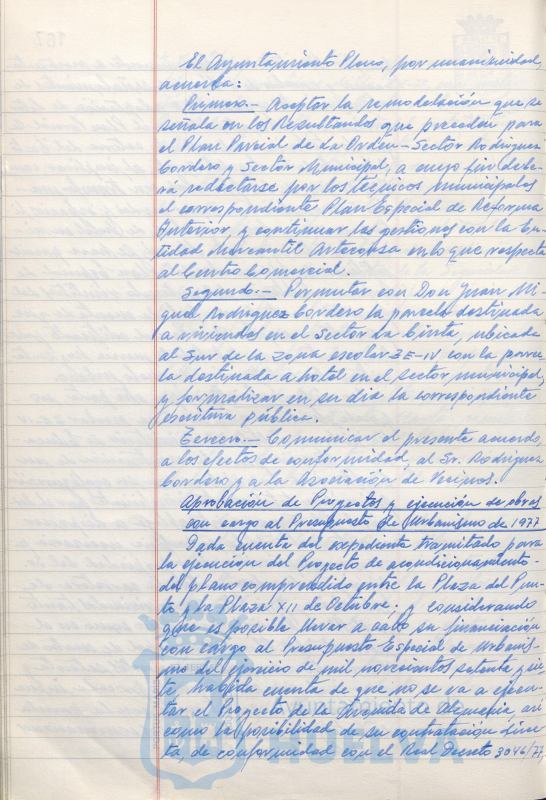 El Ayuntamiento Pleno, por unanimidad,
acuerda:
Primero.- Aceptar la remodelación que se
señala en los Resultandos que preceden para
el Plan Parcial de La Orden-Sector Rodriguez
Cordero y Sector Municipal, a cuyo fin debe-
rá redactarse por los técnicos municipales
el correspondiente Plan Especial de Reforma
Interior, y continuar las gestiones con la En-
tidad Mercantil en lo que respecta
al Centro Comercial.
Segundo.- Permutar con Don Juan Mi-
guel Rodriguez Cordero la parcela destinada
a viviendas en el Sector La Cinta, ubicada
al Sur de la zona escolar ZE-IV con la parce-
la destinada a hotel en el sector municipal,
y formalizar en su dia la correspondiente
escritura pública.
Tercero.- Comunicar el presente acuerdo,
a los efectos de conformidad, al Sr. Rodriguez
Cordero y a la Asociación de Vecinos.
Aprobación de Proyectos y ejecución de obras
con cargo al Presupuesto de Urbanismo de 1977
Dada cuenta del expediente tramitado para
la ejecucion del Proyecto de acondicionamiento
del plano comprendido entre la Plaza del Pun-
to y la Plaza XII de Octubre; y considerando
que es posible llevar a cabo su financiación
con cargo al Presupuesto Especial de Urbanis-
mo del ejercicio de mil novecientos setenta y sie-
te, habida cuenta de que no se va a ejecu-
tar el Proyecto de la Avenida de Alemania, asi
como la posibilidad de su contratación direc-
ta, de conformidad con el Real Decreto 3046/77,
HUELVA